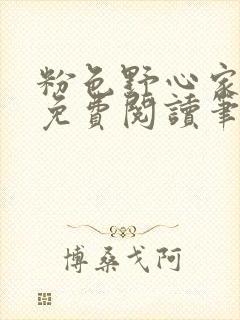 粉色野心家
免費閱讀筆
博桑戈阿